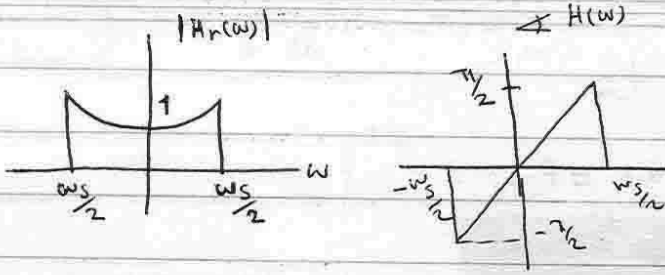 |Hr(ω)|
∠ H(ω)
1
π/2
ωs/2
ωs/2
ω
-ωs/2
ωs/2
-π/2